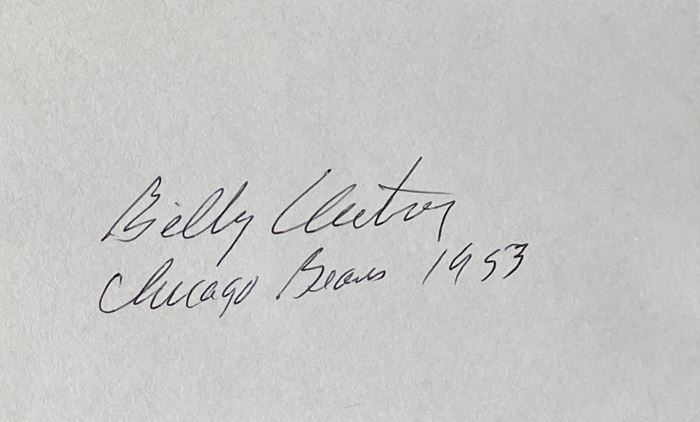 Billy Autrey
Chicago Bears 1953